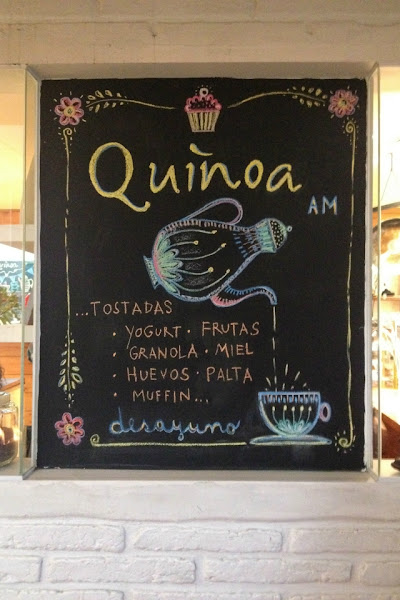 Quìnoa
AM
...TOSTADAS
· YOGURT · FRUTAS
· GRANOLA · MIEL
· HUEVOS · PALTA
· MUFFIN...
desayuno